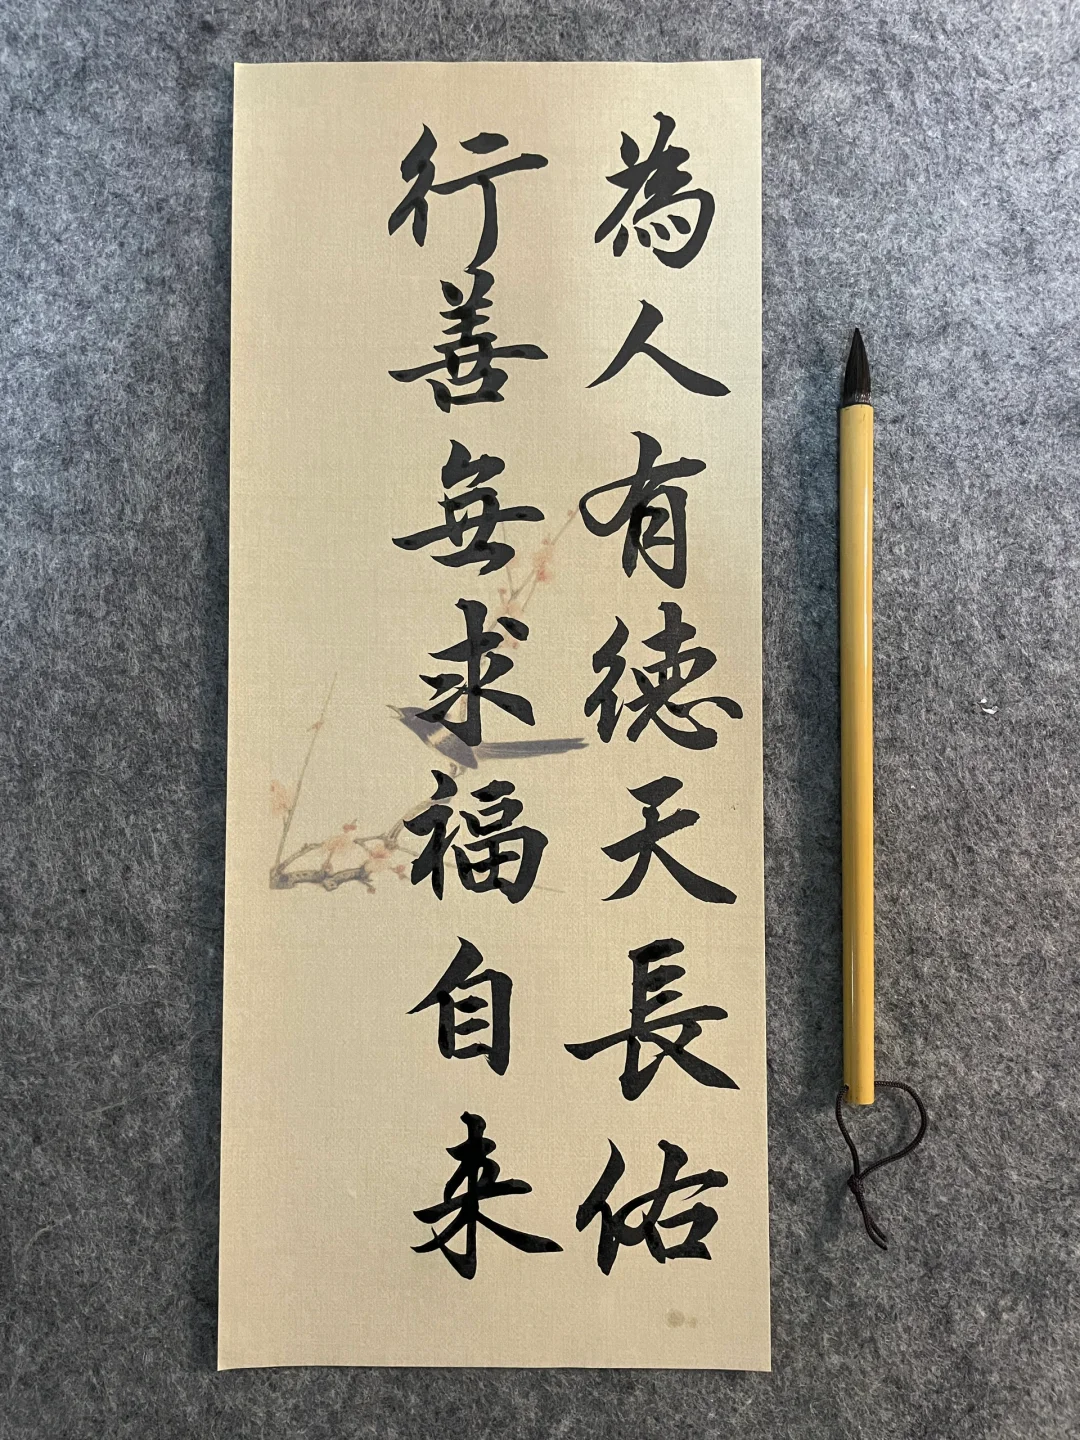 為人有徳天長佑
行善無求福自来